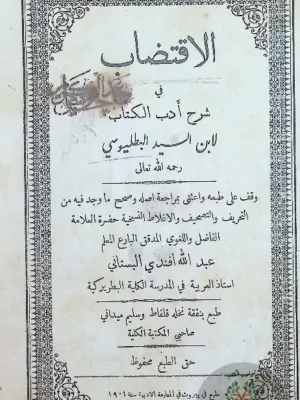 الاقتضاب
في
شرح أدب الكتاب
لابن السيد البطليوسي
رحمه الله تعالى
وقف على طبعه واعتنى بمراجعة اصله وصحيح ما وجد فيه من
التحريف والتصحيف والاغلاط النسخية حضرة العلامة
الفاضل واللغوي المدقق البارع المعلم
عبد الله افندي البستاني
استاذ العربية في المدرسة الكلية البطريركية
طبع بنفقة نخله قلفاط وسليم ميداني
صاحبي المكتبة الكلية
حق الطبع محفوظ
طبع في بيروت في المطبعة الادبية سنة ١٩٠١